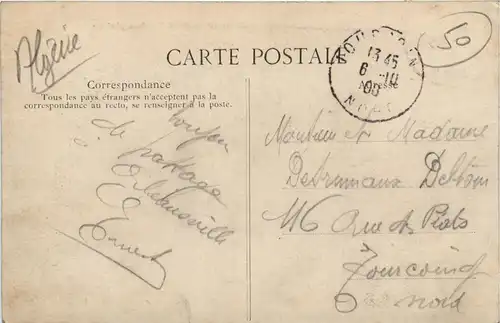 Algérie
50
CARTE POSTALE
Correspondance
Tous les pays étrangers n'acceptent pas la
correspondance au recto, se renseigner à la poste.
Adresse
TOURCOING
13 45
6 -10
06
NORD
de passage
à Orléansville
Ernest
Monsieur et Madame
Destrumaux Delbar
116 Rue des Piats
Tourcoing
Nord